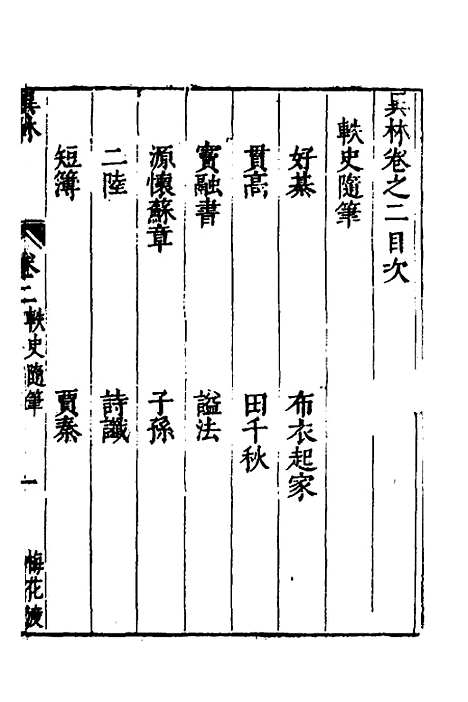 異林卷之二目次
軼史隨筆
好棊
布衣起家
貫高
田千秋
竇融書
謚法
源懷蘇章
子孫
二陸
詩讖
短簿
賈秦
異林
卷二
軼史隨筆
一
梅花渡